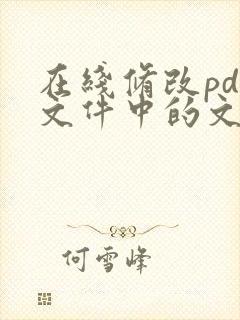 在綫脩改pd
文件中的文
何雪峰